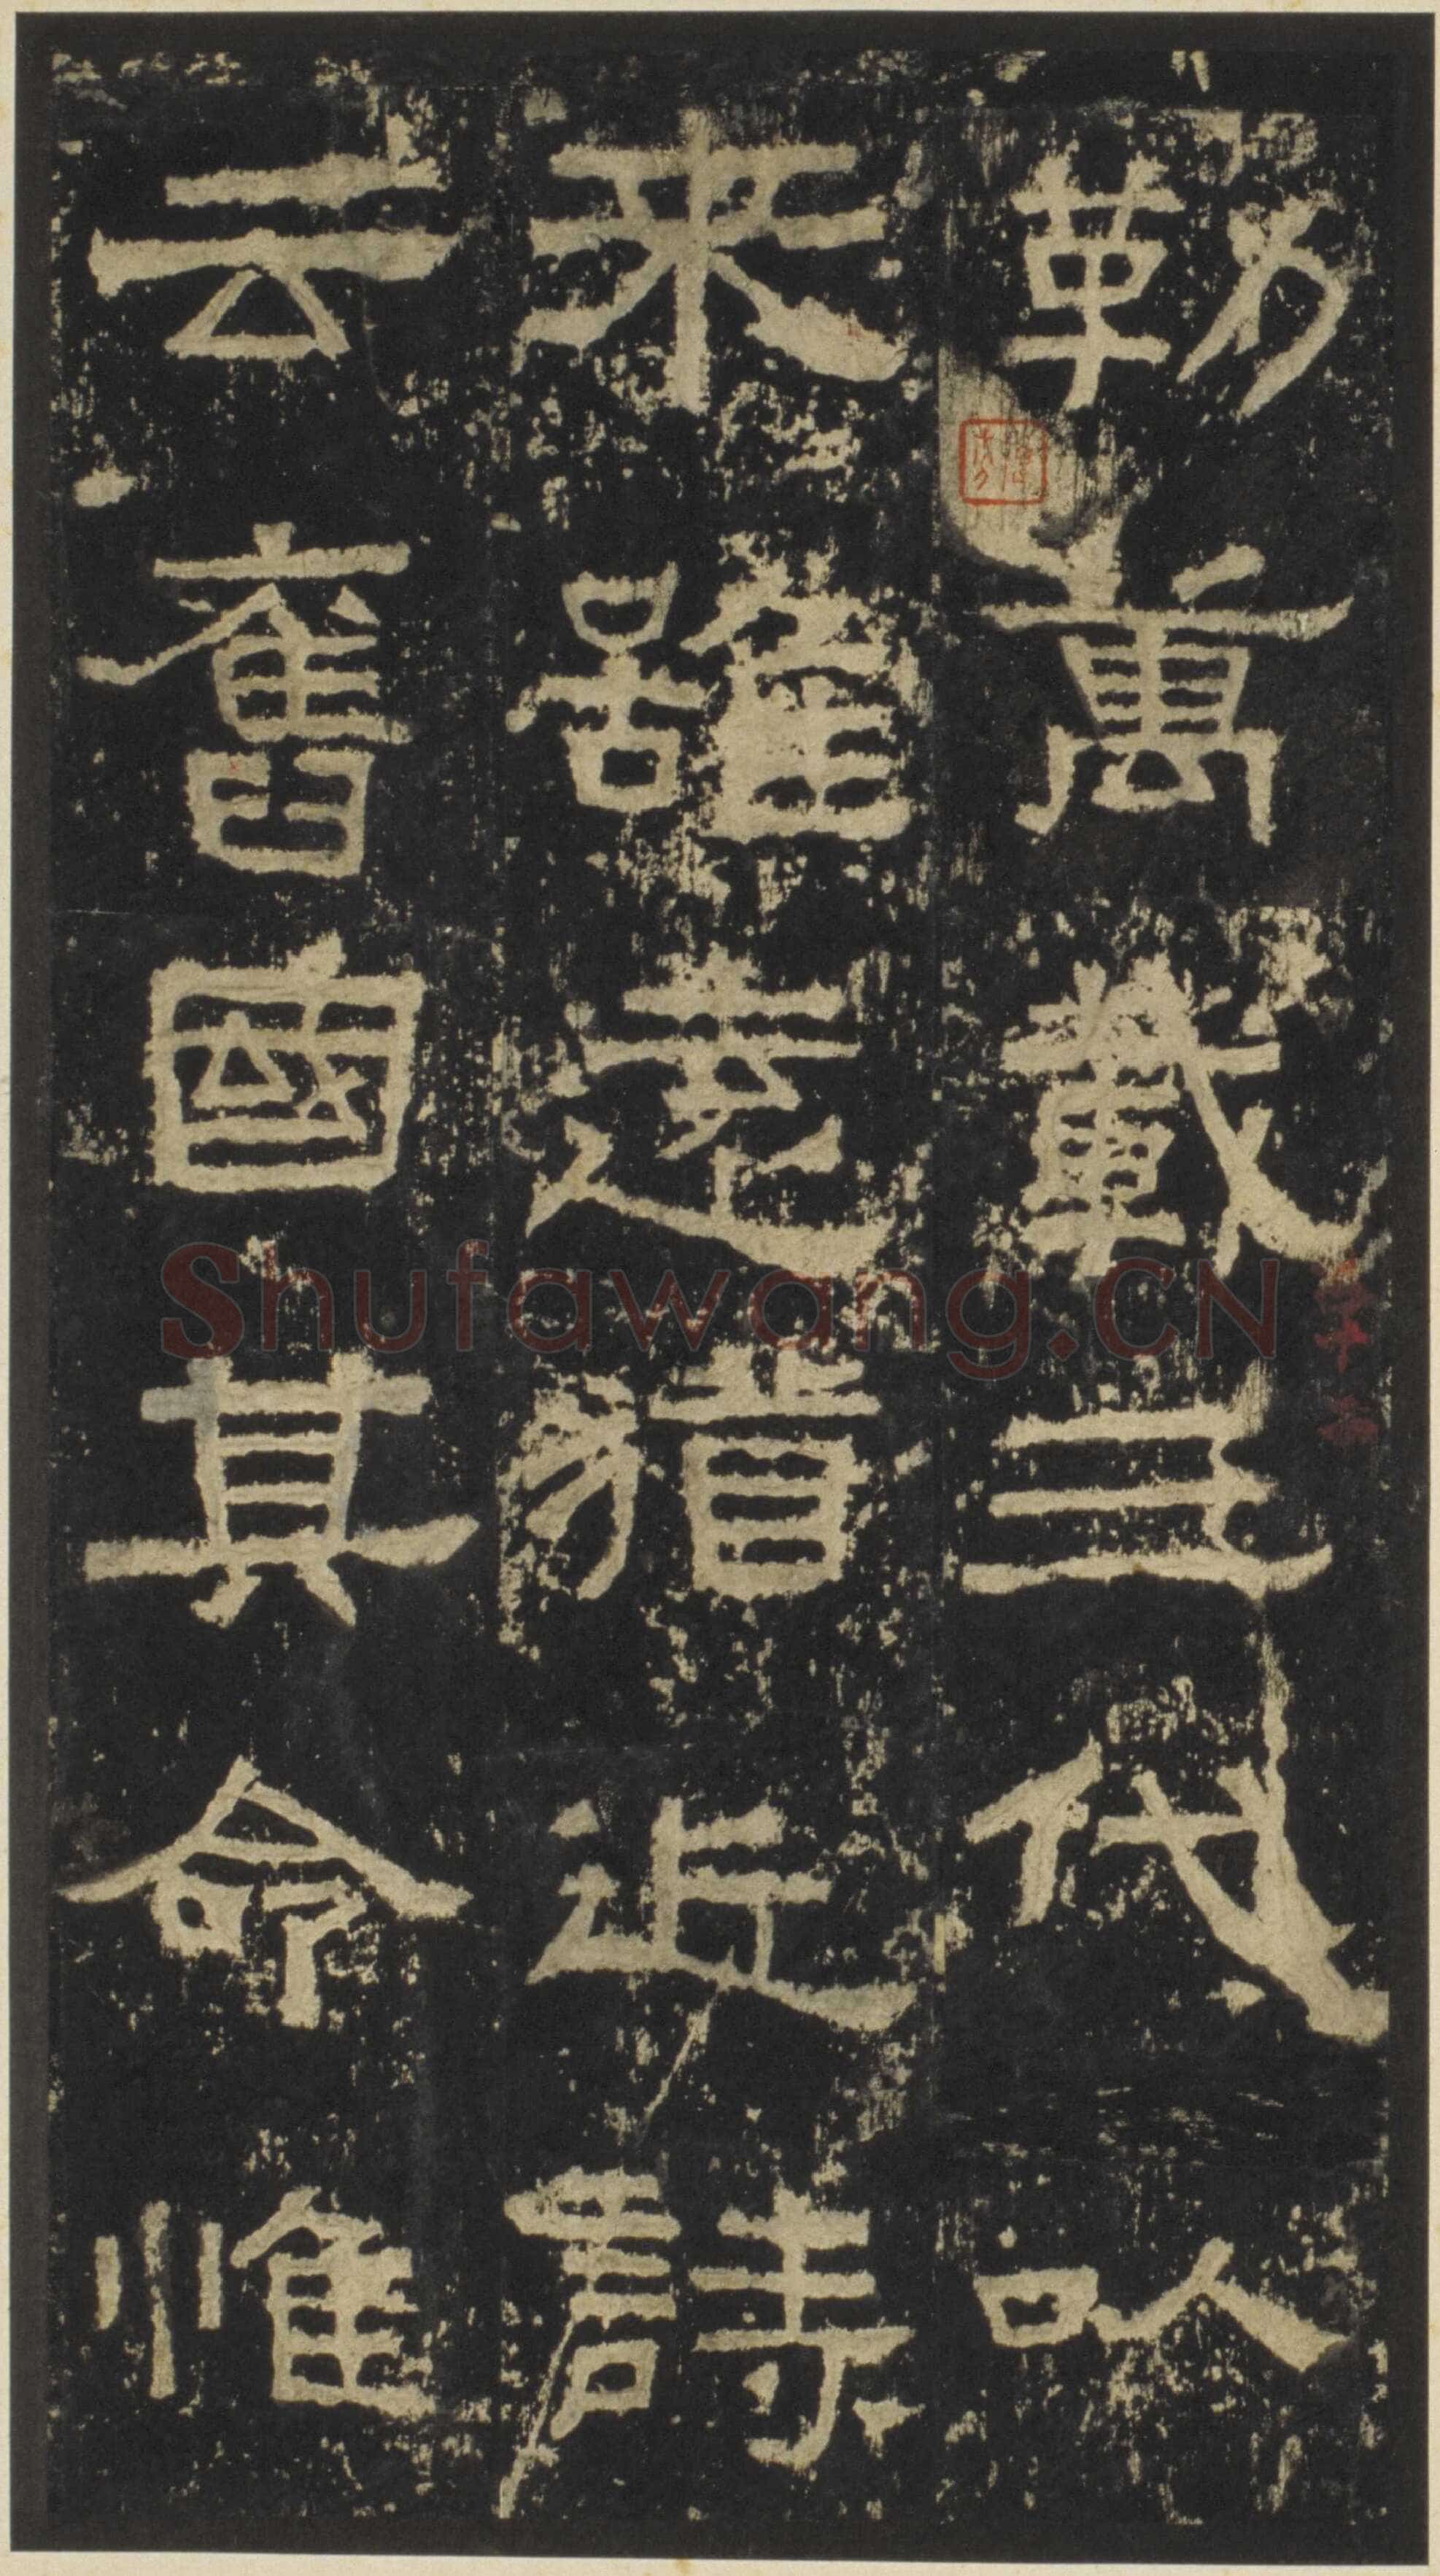 勒萬載三代以
來雖遠猶近詩
云舊國其命惟
Shufawang.CN